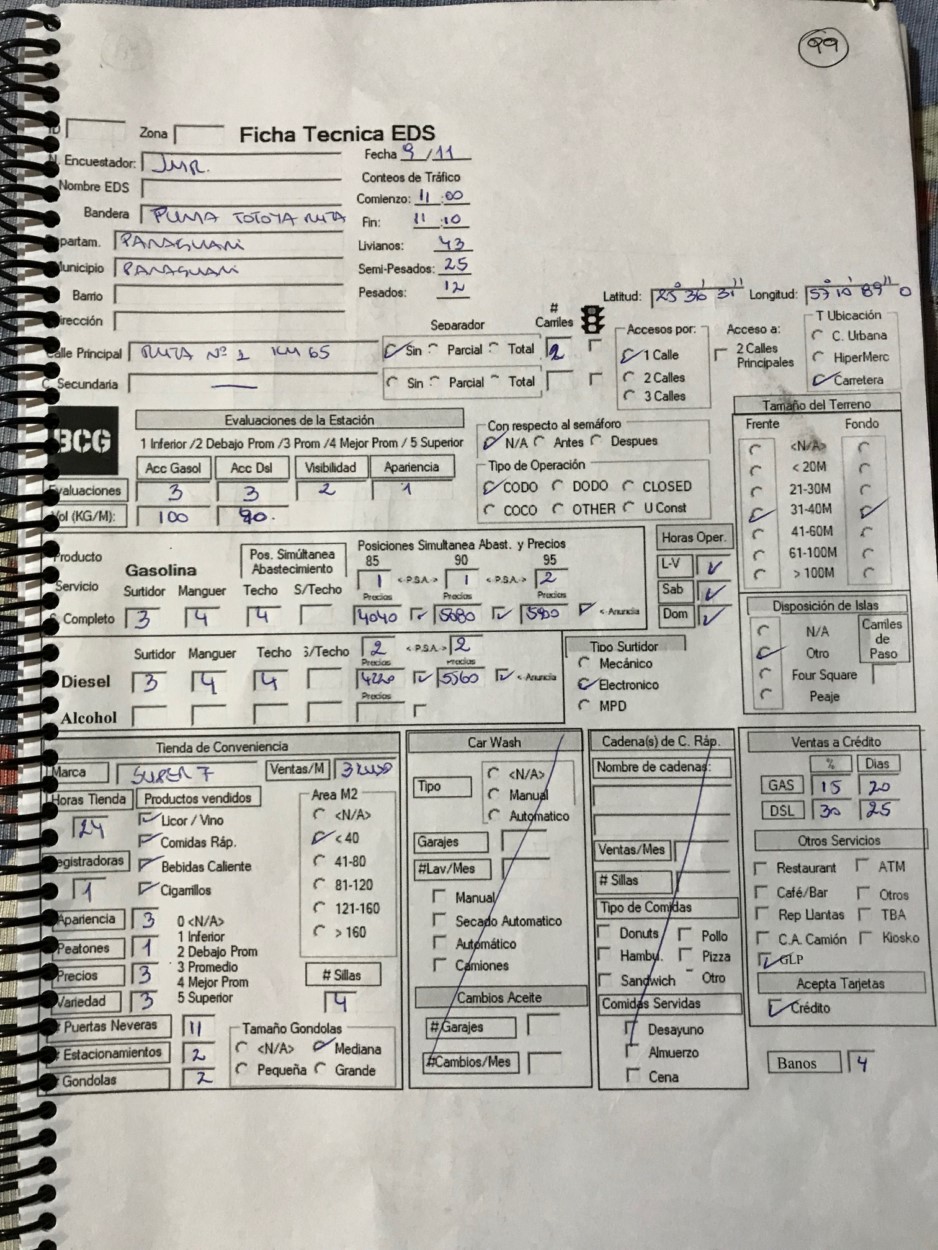 99
ID Zona Ficha Tecnica EDS
N. Encuestador: JMR. Fecha 9/11
Nombre EDS Conteos de Tráfico
Comienzo: 11:00
Bandera PUMA TOTOTA RUTA Fin: 11:10
Departam. PARAGUARI Livianos: 43
Municipio PARAGUARI Semi-Pesados: 25
Barrio Pesados: 12
Latitud: 25° 36' 31" Longitud:
Dirección Separador # Carriles Accesos por: Acceso a: T Ubicación
Calle Principal RUTA Nº 1 KM 65 Sin Parcial Total 2 1 Calle 2 Calles Principales C. Urbana
C. Secundaria — Sin Parcial Total 2 Calles HiperMerc
3 Calles Carretera
BCG Evaluaciones de la Estación Con respecto al semáforo Tamaño del Terreno
1 Inferior /2 Debajo Prom /3 Prom /4 Mejor Prom / 5 Superior N/A Antes Despues Frente Fondo
Acc Gasol Acc Dsl Visibilidad Apariencia Tipo de Operación <N/A>
Evaluaciones 3 3 2 1 CODO DODO CLOSED < 20M
Vol (KG/M): 100 90. COCO OTHER U Const 21-30M
31-40M
41-60M
61-100M
> 100M
Producto Pos. Simúltanea Abastecimiento Posiciones Simultanea Abast. y Precios Horas Oper.
Gasolina 85 90 95 L-V
Servicio 1 <-P.S.A.-> 1 <-P.S.A.-> 2 Sab
Surtidor Manguer Techo S/Techo Precios Precios Precios Dom
Completo 3 4 4 4040 5680 <-Anuncia
Disposición de Islas
N/A Carriles de Paso
Otro
Four Square
Peaje
Surtidor Manguer Techo S/Techo 2 <-P.S.A.-> 2 Tipo Surtidor
Precios Precios Mecánico
Diesel 3 4 4 4220 5560 <-Anuncia Electronico
Precios MPD
Alcohol
Tienda de Conveniencia Car Wash Cadena(s) de C. Ráp. Ventas a Crédito
Marca SUPER 7 Ventas/M Nombre de cadenas: % Dias
Horas Tienda Productos vendidos Area M2 Tipo <N/A> GAS 15 20
24 Licor / Vino <N/A> Manual DSL 30 25
Comidas Ráp. < 40 Automatico Otros Servicios
Registradoras Bebidas Caliente 41-80 Garajes Ventas/Mes Restaurant ATM
1 Cigarrillos 81-120 #Lav/Mes # Sillas Café/Bar Otros
Apariencia 3 0 <N/A> 121-160 Manual Tipo de Comidas Rep Llantas TBA
1 Inferior > 160 Secado Automatico Donuts Pollo C.A. Camión Kiosko
Peatones 1 2 Debajo Prom Automático Hambu. Pizza GLP
Precios 3 3 Promedio # Sillas Camiones Sandwich Otro Acepta Tarjetas
4 Mejor Prom
Variedad 3 5 Superior 4 Cambios Aceite Comidas Servidas Crédito
# Puertas Neveras 11 Tamaño Gondolas #Garajes Desayuno
# Estacionamientos 2 <N/A> Mediana #Cambios/Mes Almuerzo Banos 4
# Gondolas 2 Pequeña Grande Cena